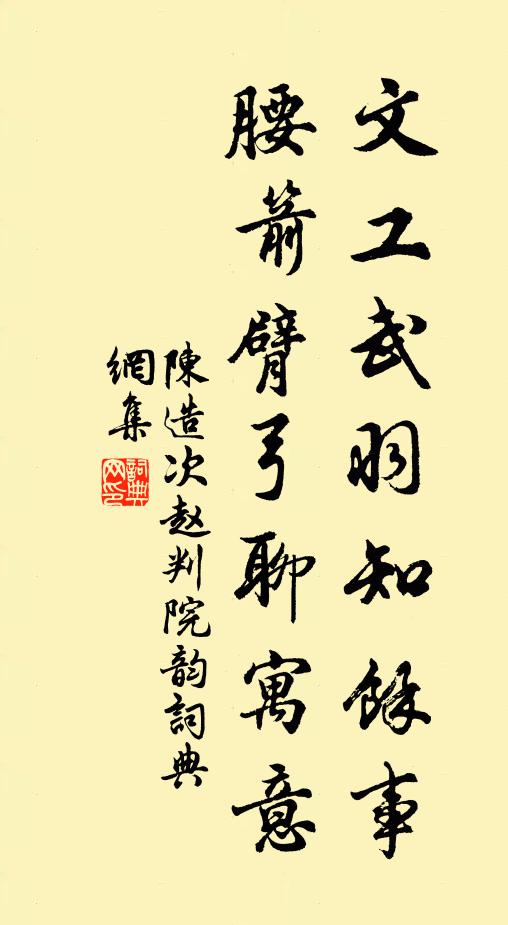 文工武明知餘事
腰箭臂弓聊寓意
陳造次赵判院韵詞典
網集
詞典
网印